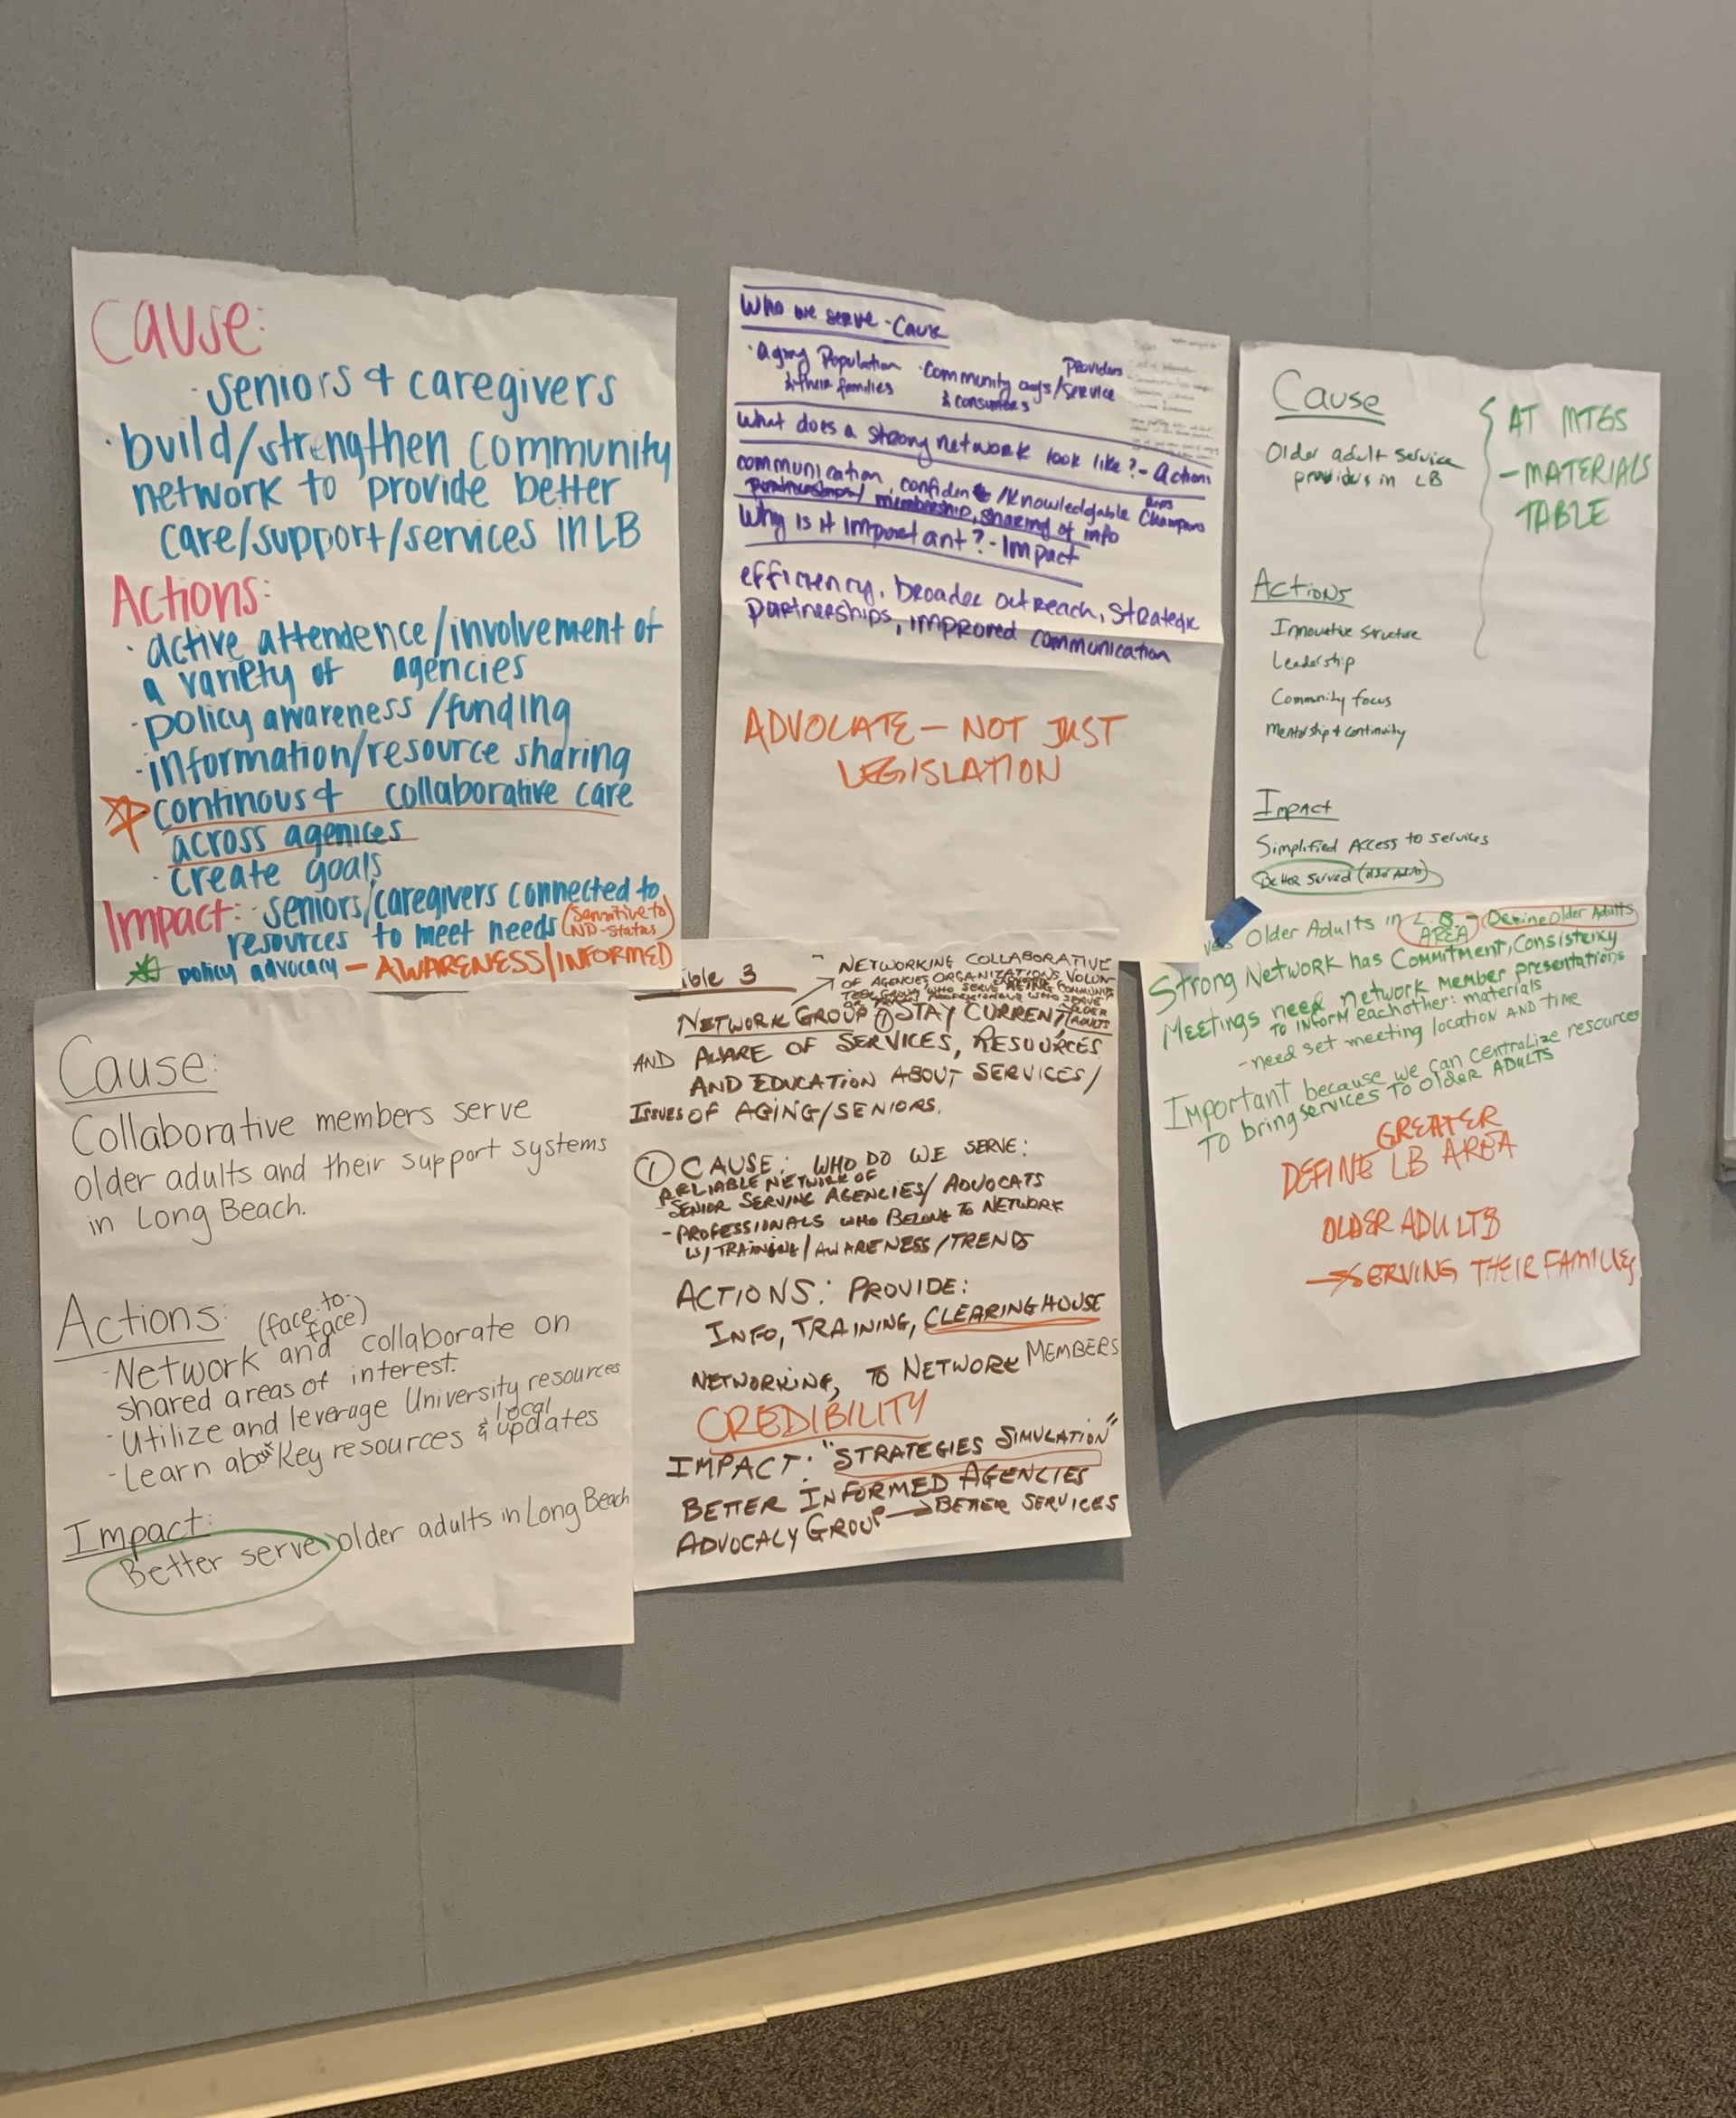 Cause:
· seniors & caregivers
· build/strengthen community
network to provide better
care/support/services in LB
Actions:
· active attendence/involvement of
a variety of agencies
· policy awareness/funding
· information/resource sharing
continous & collaborative care
across agenices
· create goals
Impact: · seniors/caregivers connected to
resources to meet needs (sensitive to
ND-status)
policy advocacy – AWARENESS/INFORMED
Who we serve - Cause
· Aging Population
& their families
· Community orgs/service
Providers
& consumers
What does a strong network look like? - Actions
communication, confident/knowledgable Reps
Champions
partnerships/membership, sharing of info
Why is it important? - Impact
efficiency, broader outreach, strategic
partnerships, improved communication
ADVOCATE – NOT JUST
LEGISLATION
Cause
Older adult service
providers in LB
AT MTGS
– MATERIALS
TABLE
Actions
Innovative structure
Leadership
Community focus
Mentorship & continuity
Impact
Simplified Access to services
Better served (older adults)
Cause:
Collaborative members serve
older adults and their support systems
in Long Beach.
Actions: (face-to-
face)
- Network and collaborate on
shared areas of interest.
- Utilize and leverage University resources
- Learn about key resources & local
updates
Impact:
Better serve older adults in Long Beach
ble 3
- NETWORKING COLLABORATIVE
OF AGENCIES, ORGANIZATIONS, VOLUN-
WHO SERVE
OLDER
ADULTS
NETWORK GROUP ① STAY CURRENT
AND AWARE OF SERVICES, RESOURCES
AND EDUCATION ABOUT SERVICES/
ISSUES OF AGING/SENIORS.
① CAUSE: WHO DO WE SERVE:
A RELIABLE NETWORK OF
- SENIOR SERVING AGENCIES/ADVOCATS
- PROFESSIONALS WHO BELONG TO NETWORK
W/ TRAINING/AWARENESS/TRENDS
ACTIONS: PROVIDE:
INFO, TRAINING, CLEARINGHOUSE
NETWORKING, TO NETWORK MEMBERS
CREDIBILITY
IMPACT: "STRATEGIES SIMULATION"
BETTER INFORMED AGENCIES
ADVOCALY GROUP → BETTER SERVICES
Older Adults in L.B. - Define Older Adults
AREA
Strong Network has Commitment, Consistency
Meetings need network member presentations
to inform eachother: materials
- need set meeting location and time
Important because we can centralize resources
To bring services to older adults
GREATER
DEFINE LB AREA
OLDER ADULTS
→ SERVING THEIR FAMILIES